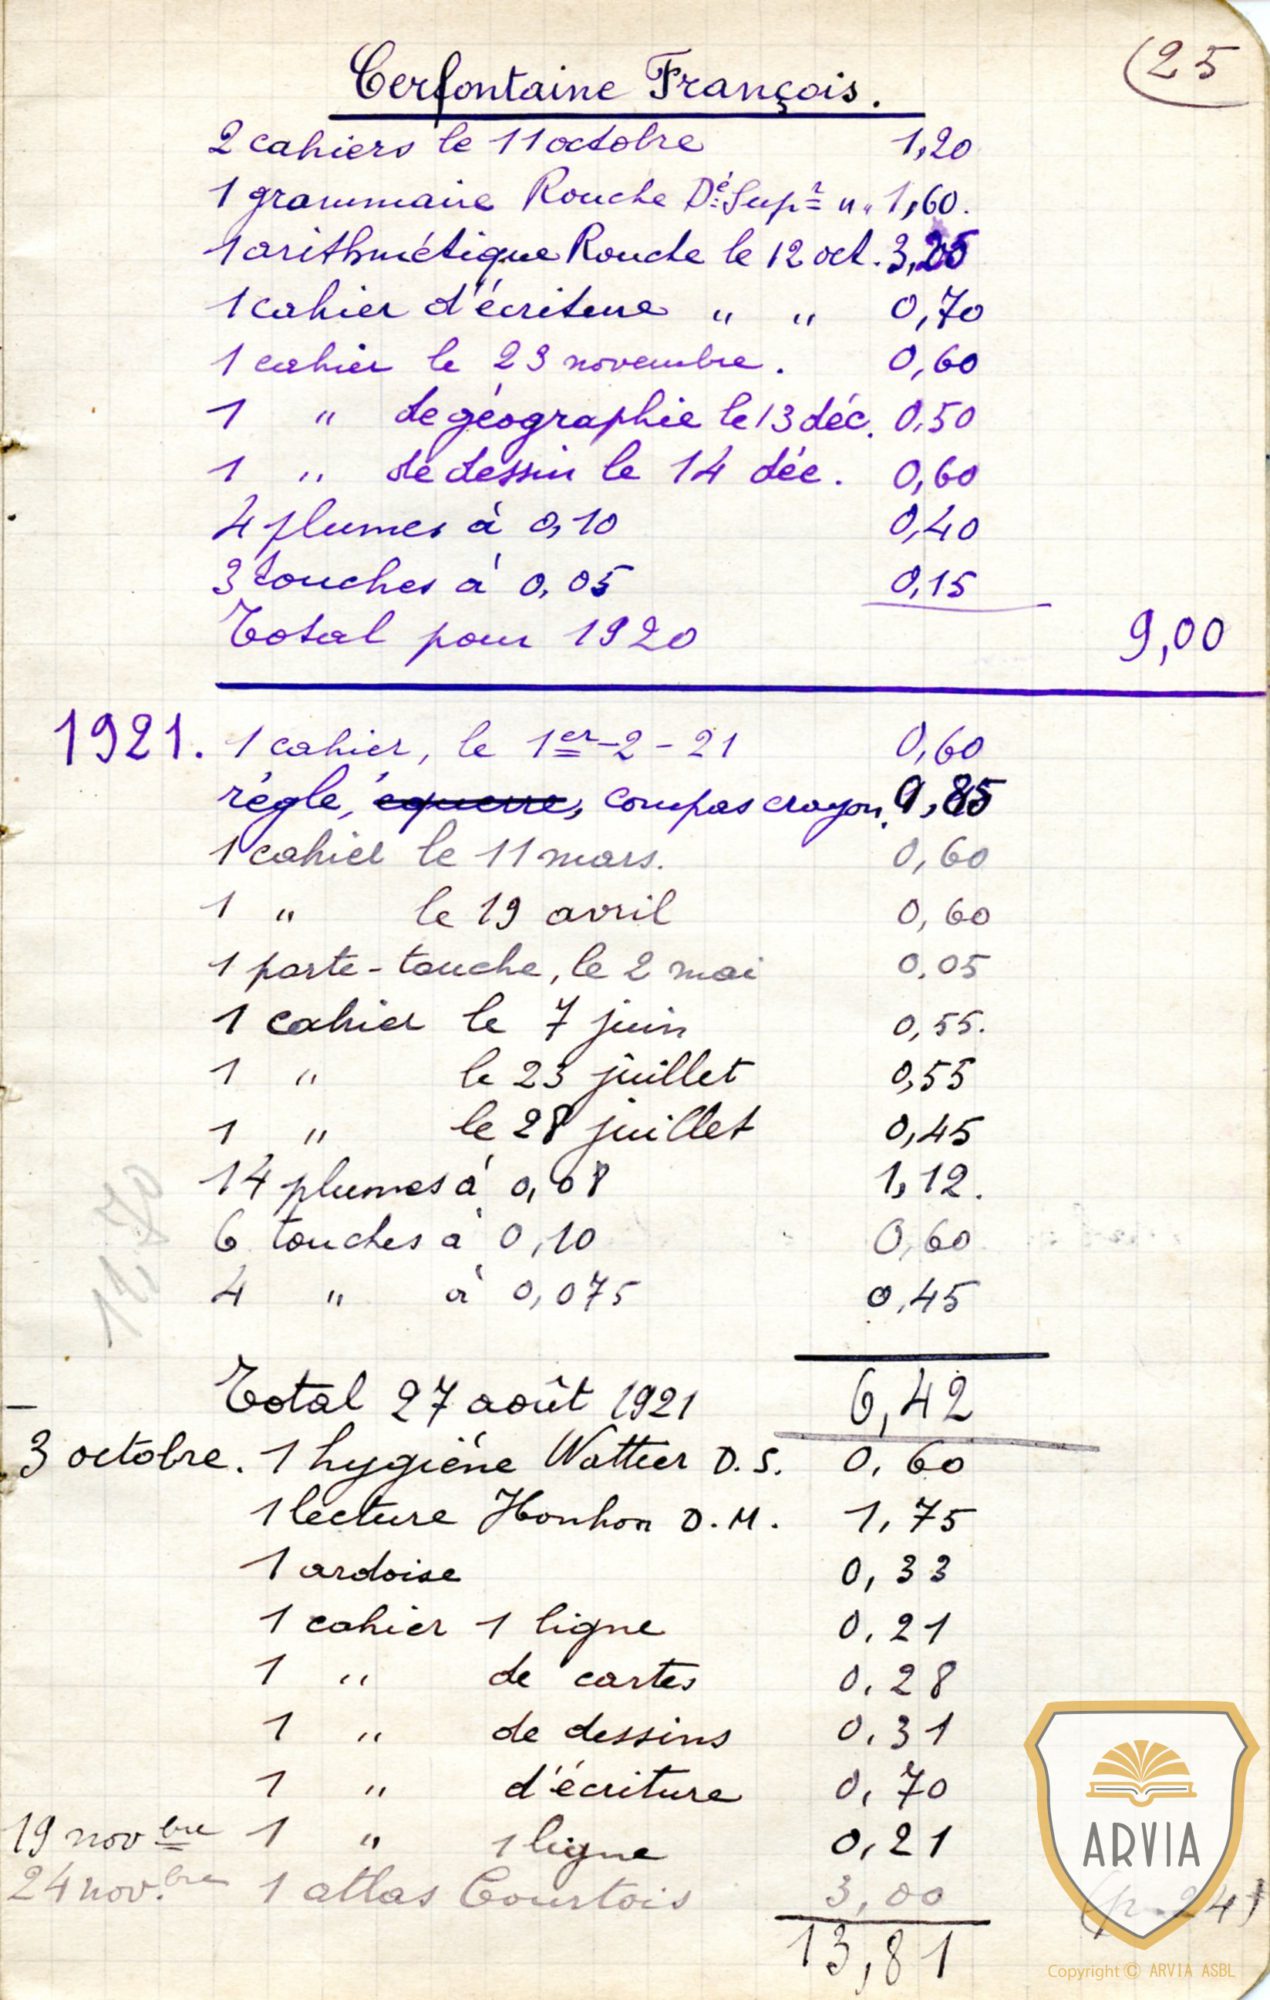 (25
Cerfontaine François.
2 cahiers le 11 octobre 1,20
1 grammaire Rouche Dé. Supr „ 1,60.
1 arithmétique Rouche le 12 oct. 3,25
1 cahier d'écriture „ „ 0,70
1 cahier le 23 novembre. 0,60
1 „ de géographie le 13 déc. 0,50
1 „ de dessin le 14 déc. 0,60
4 plumes à 0,10 0,40
3 touches à 0,05 0,15
Total pour 1920 9,00
1921. 1 cahier, le 1er-2-21 0,60
règle, équerre, compas crayon. 0,85
1 cahier le 11 mars. 0,60
1 „ le 19 avril 0,60
1 porte-touche, le 2 mai 0.05
1 cahier le 7 juin 0,55.
1 „ le 23 juillet 0,55
1 „ le 28 juillet 0,45
14 plumes à 0,08 1,12.
6 touches à 0,10 0,60
4 „ à 0,075 0,45
Total 27 août 1921 6,42
3 octobre. 1 hygiène Wattier D.S. 0,60
1 lecture Honhon D.M. 1,75
1 ardoise 0,33
1 cahier 1 ligne 0.21
1 „ de cartes 0.28
1 „ de dessins 0.31
1 „ d'écriture 0,70
19 novbre 1 „ 1 ligne 0,21
24 nov.bre 1 atlas Courtois 3,00
(p. 24)
13,81
ARVIA
Copyright © ARVIA ASBL